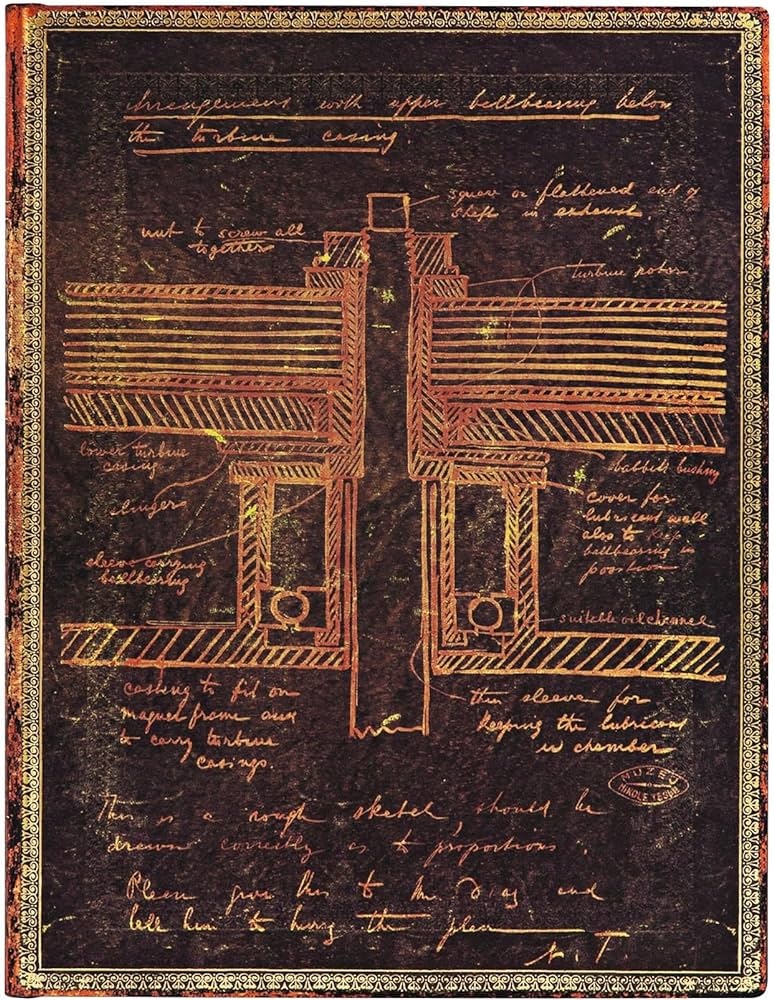 Arrangement with upper bellbearing below
the turbine casing.
square or flattened end of
shaft in exhaust.
nut to screw all
together
turbine rotor
lower turbine
casing
babbitt bushing
slingers
cover for
lubricant well
also to keep
bellbearing in
position
sleeve carrying
bellbearing
suitable oil channel
casting to fit on
magnet frame and
to carry turbine
casings.
thin sleeve for
keeping the lubricant
in chamber
MUZEJ
NIKOLE TESLE
This is a rough sketch, should be
drawn correctly as to proportions.
Please give this to Mr and
tell him to hurry the plan
N. T.